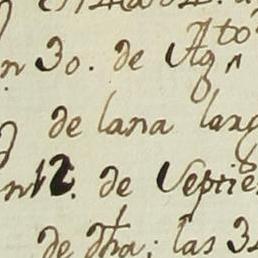 n 30. de Agto
de lana larg
n 12. de Septie
de dha; las 3